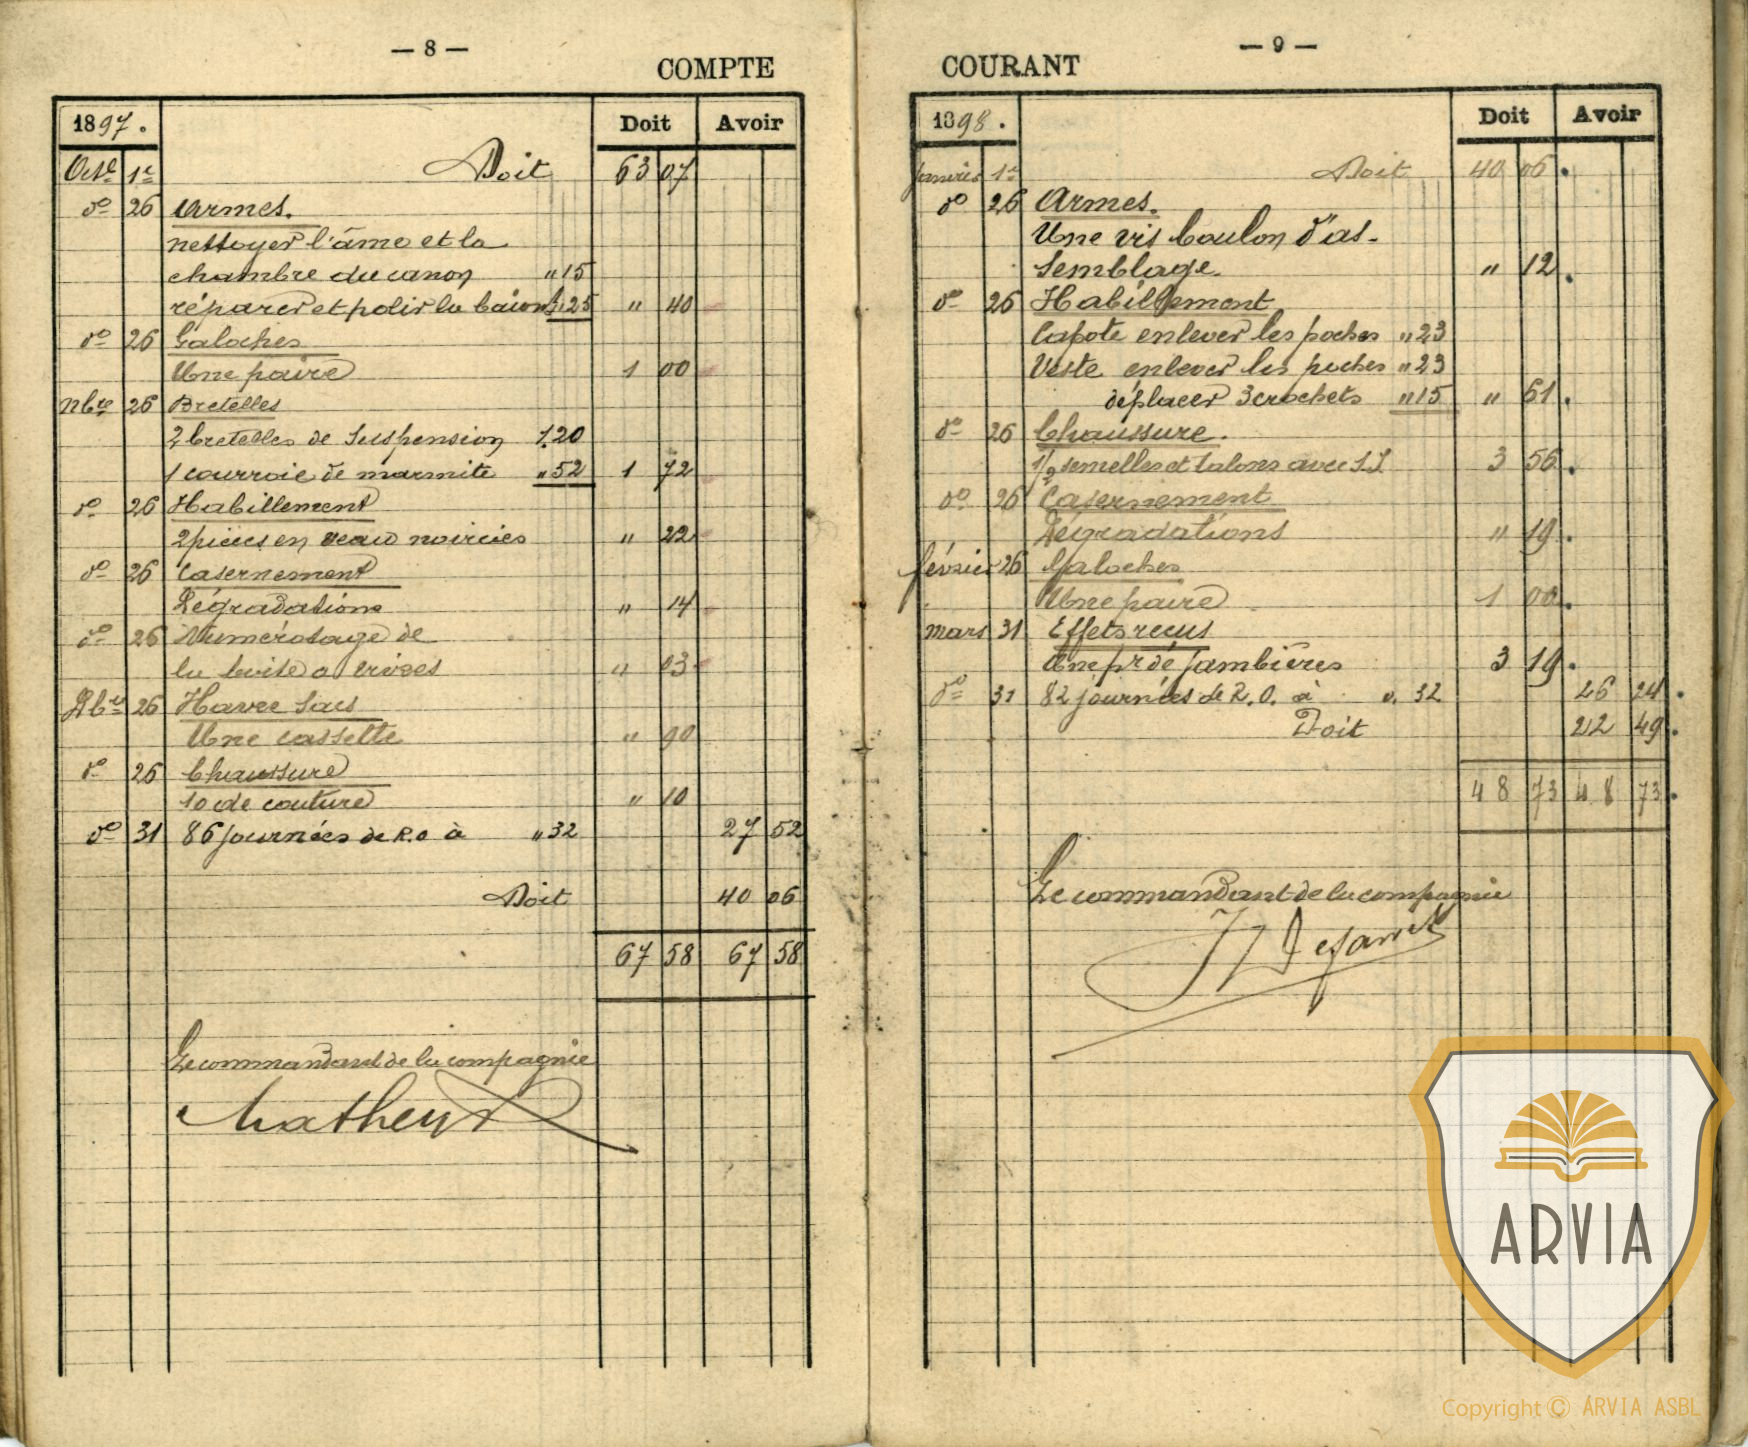 — 8 —
COMPTE
1897. Doit Avoir
Octe 1er Doit 63 07
do 26 Armes.
nettoyer l'âme et la
chambre du canon " 15
réparer et polir la baionte " 25 " 40
do 26 Galoches
Une paire 1 00
Nbre 26 Bretelles
2 bretelles de suspension 1.20
1 courroie de marmite " 52 1 72
do 26 Habillement
2 pièces en veau noircies " 22
do 26 Casernement
Dégradations " 14
do 26 Numérotage de
la boite a " 03
Dbre 26 Havre Sacs
Une cassette " 90
do 26 Chaussure
10 de couture " 10
do 31 86 journées de R.O à " 32 27 52
Doit 40 06
67 58 67 58
Le commandant de la compagnie
— 9 —
COURANT
1898. Doit Avoir
Janvier 1er Doit 40 06.
do 26 Armes.
Une vis boulon d'as-
semblage. " 12.
do 26 Habillement
Capote enlever les poches " 23
Veste enlever les poches " 23
déplacer 3 crochets " 15 " 61.
do 26 Chaussure.
1/2 semelles et talons avec S.S 3 56.
do 26 Casernement
Dégradations " 19.
février 26 Galoches
Une paire 1 00.
mars 31 Effets reçus
Une pr de Jambières 3 19.
do 31 82 journées de R.O. à 0.32 26 24.
Doit 22 49.
48 73 48 73.
Le commandant de la compagnie
ARVIA
Copyright © ARVIA ASBL